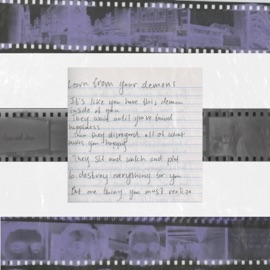 Learn from your demons
It's like you have this demon
inside of you
They wait until you've found
happiness
Then they disrespect all of what
makes you happy
They sit and watch and plot
to destroy everything for you
But one thing you must realize